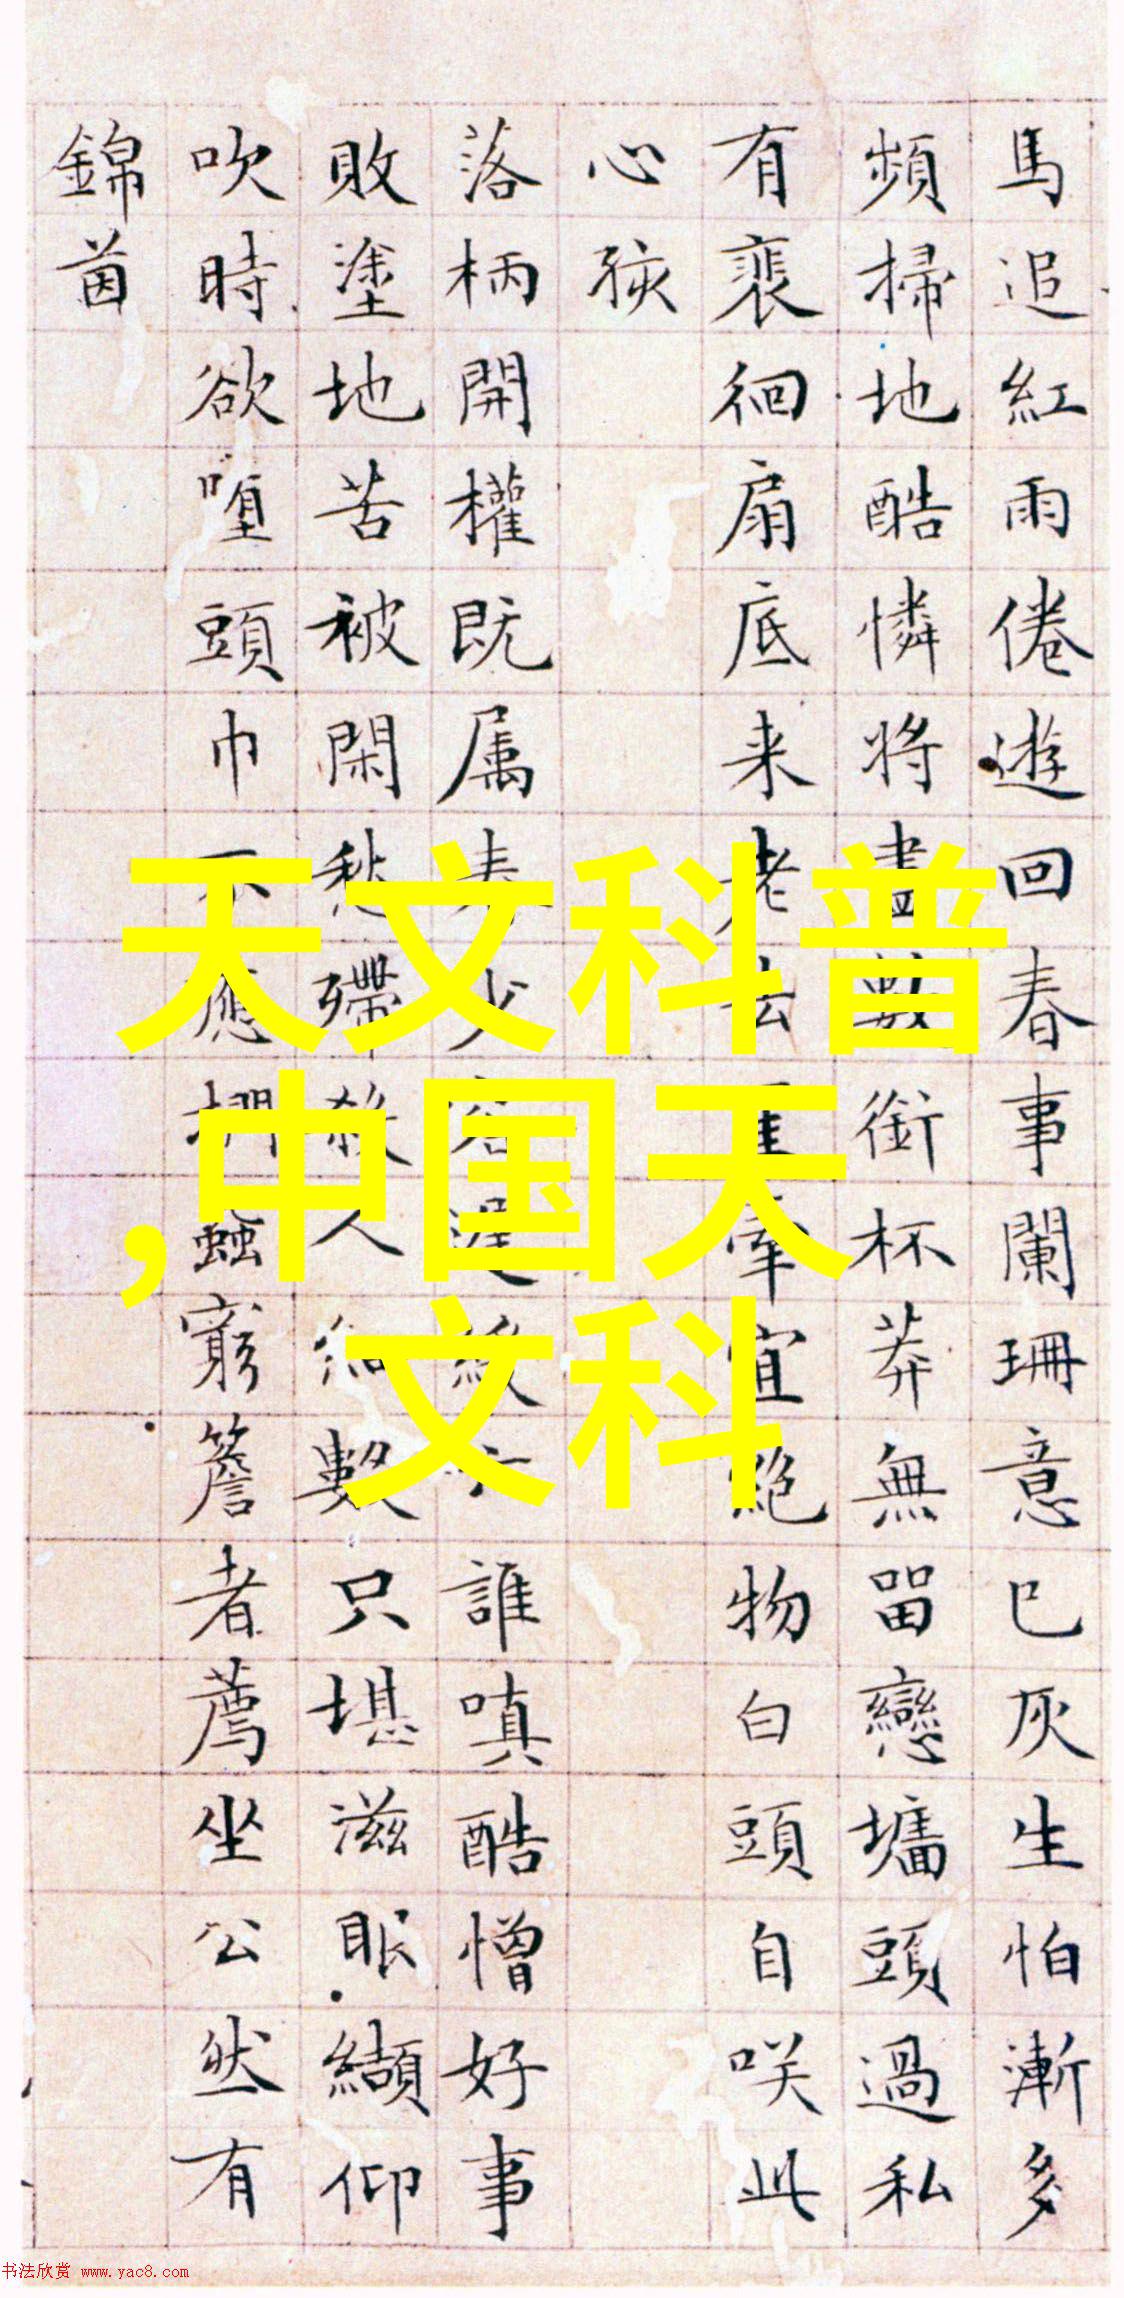 馬追紅雨倦遊回春事闌珊意已灰生怕漸多
頻掃地酷憐將盡數銜杯莽無留戀墻頭過私
有裵徊扇底来老去牽宜絕物白頭自咲此
心孩
落柄開權既属少誰嗔酷憎好事
敗塗地苦被閑愁殢殺人細數只堪滋眼纈仰
吹時欲堕頭巾不應捫蝨窮簷者薦坐公然有
錦茵
天文科普
,中国天
文科
书法欣赏 www.yac8.com